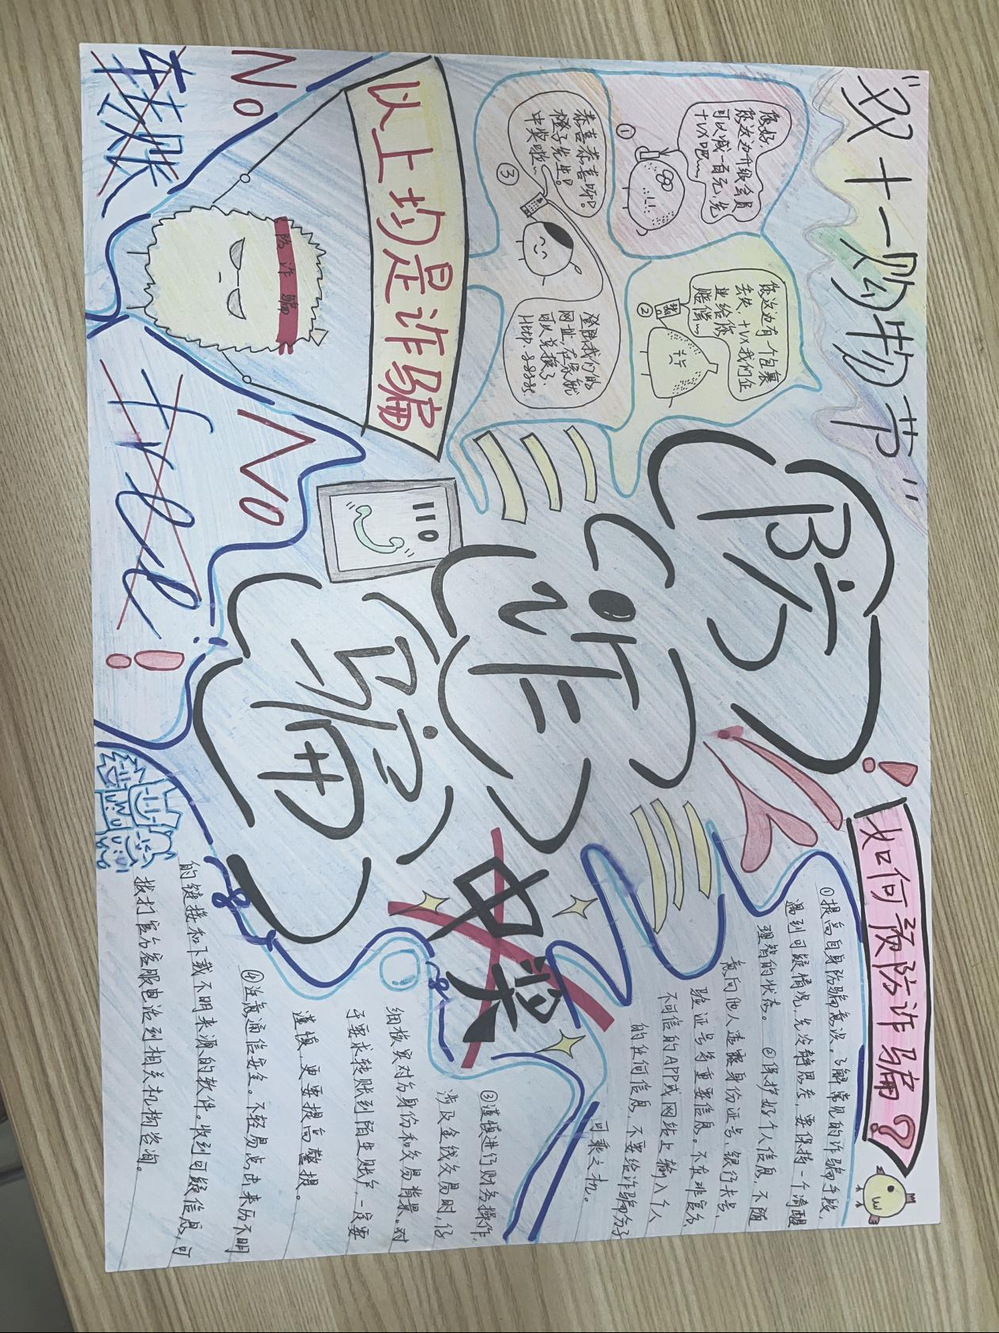 “双十一购物节”
您好,
您这边升级会员
可以减一百元,先
十V吧~~
①
您这边有一个包裹
丢失,十V我们企
业给您
赔偿~
②
恭喜恭喜呀?
橙子先生?
中奖啦~~
③
登陆我们的
网址,在奈航
可以兑换了.
Http.88885.
以上均是诈骗
防诈骗
No
转账
No
110
防
诈
骗
!
中奖
如何预防诈骗?
①提高自身防骗意识。了解常见的诈骗手段,
遇到可疑情况,先冷静思考,要保持一个清醒
理智的状态。 ②保护好个人信息,不随
意向他人透露身份证号,银行卡号,
验证号等重要信息。不在非官方
不可信的APP或网站上输入个人
的任何信息,不要给诈骗分子
可乘之机。
③谨慎进行财务操作,
涉及金钱交易时,仔
细核实对方身份和交易背景。对
于要求转账到陌生账户,一定要
谨慎,更要提高警惕。
④注意通信安全。不轻易点击来历不明
的链接和下载不明来源的软件。收到可疑信息,可
拨打官方客服电话到相关机构咨询。